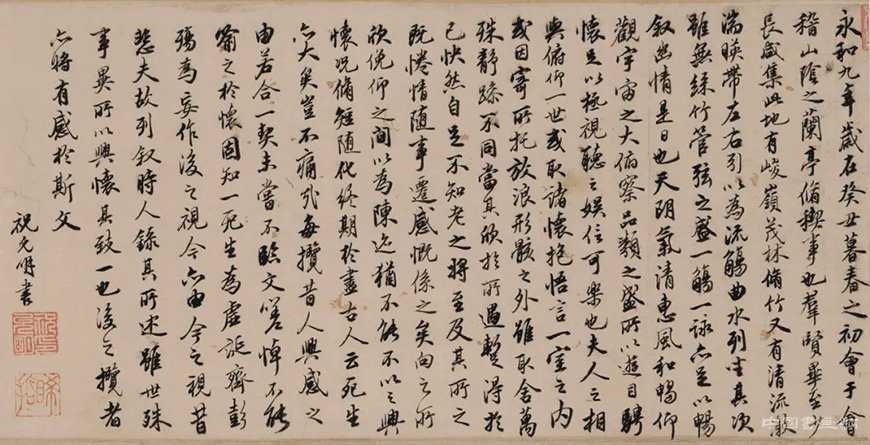 永和九年歲在癸丑暮春之初會于會
稽山陰之蘭亭脩稧事也羣賢畢至少
長咸集此地有峻嶺茂林脩竹又有清流激
湍暎帶左右引以為流觴曲水列坐其次
雖無絲竹管弦之盛一觴一詠亦足以暢
叙幽情是日也天朗氣清惠風和暢仰
觀宇宙之大俯察品類之盛所以遊目騁
懷足以極視聽之娛信可樂也夫人之相
與俯仰一世或取諸懷抱悟言一室之内
或因寄所托放浪形骸之外雖取舍萬
殊靜躁不同當其欣於所遇暫得於
己快然自足不知老之將至及其所之
既惓情隨事遷感慨係之矣向之所
欣俛仰之間以為陳迹猶不能不以之興
懷況脩短隨化終期於盡古人云死生
亦大矣豈不痛哉每攬昔人興感之
由若合一契未嘗不臨文嗟悼不能
喻之於懷固知一死生為虛誕齊彭
殤為妄作後之視今亦由今之視昔
悲夫故列叙時人錄其所述雖世殊
事異所以興懷其致一也後之攬者
亦將有感於斯文
祝允明書